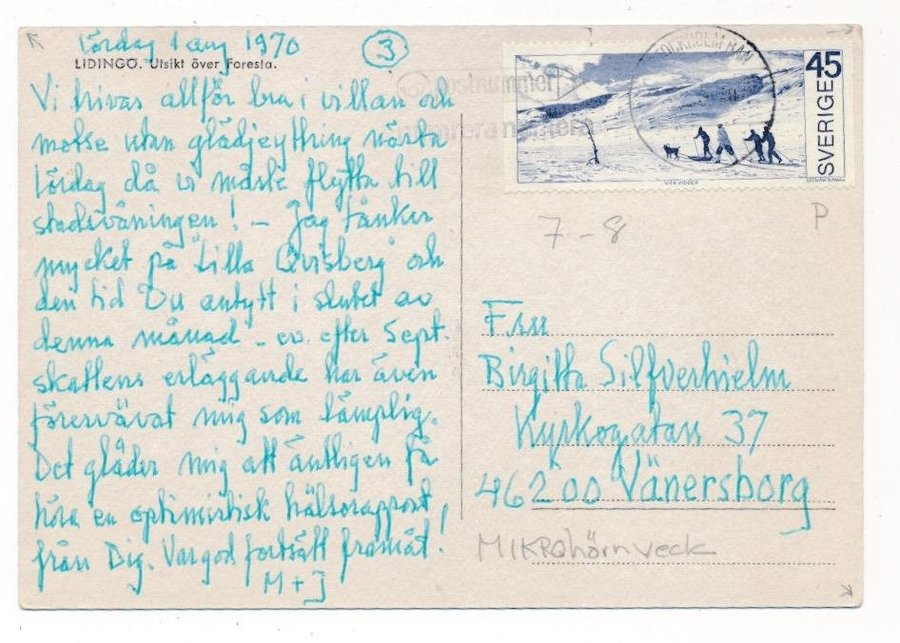 Lördag 1 aug 1970
3
LIDINGÖ. Utsikt över Foresta.
Vi trivas alltför bra i villan och
motse utan glädjeyttring nästa
lördag då vi måste flytta till
stadsvåningen! – Jag tänker
mycket på Lilla Qvisberg och
den tid Du antytt i slutet av
denna månad – ev. efter Sept.
skattens erläggande har även
föresvävat mig som lämplig.
Det gläder mig att äntligen få
höra en optimistisk hälsorapport
från Dig. Var god fortsätt framåt!
M + J
postnummer
STOCKHOLM BAN
45
SVERIGE
7-8
P
Fru
Birgitta Silfverhielm
Kyrkogatan 37
46200 Vänersborg
MIKROhörnveck